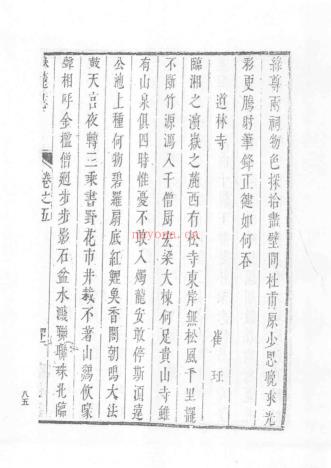 綵尊兩祠物色採拾盡壁間杜甫原少恩晚來光
彩更騰射筆鋒正健如何吞
道林寺
崔珏
臨湘之濱嶽之麓西有松寺東岸無松風千里擺
不斷竹源瀉入千僧厨宏梁大棟何足貴山寺難
有山泉俱四時惟憂不敢入燭龍安敢停斯須遠
公池上種何物碧羅扇底紅鱗魚香閣朝鳴大法
鼓天宮夜轉三乘書野花市井栽不著山鷄飲啄
聲相呼金檻僧迴步步影石盆水濺聯聯珠北臨
卷之五
八五